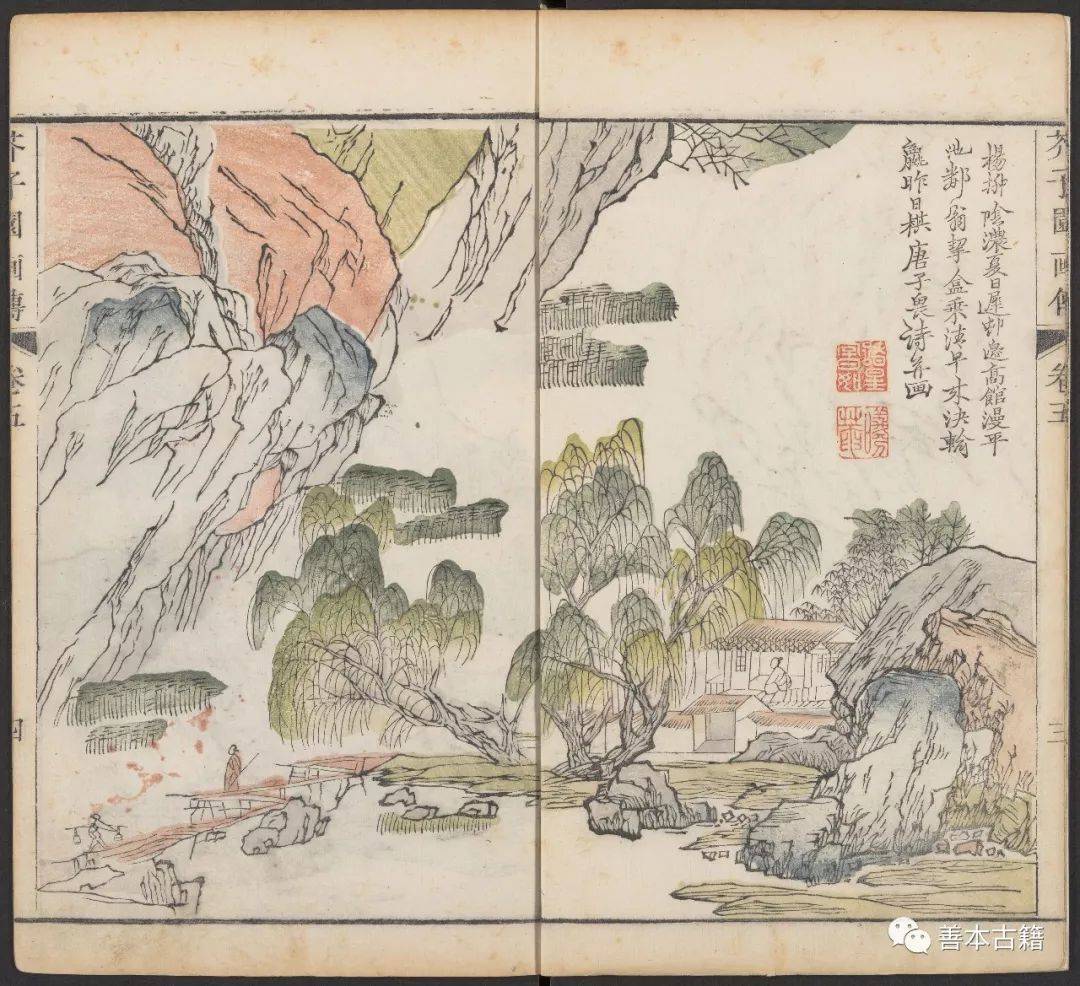 芥子園画傳
卷五
三
楊柳陰濃夏日遲邨邊高館漫平
池鄰翁挈盒乘清早來決輸
贏昨日棋唐子畏詩并画
芥子園画傳
卷五
四
善本古籍